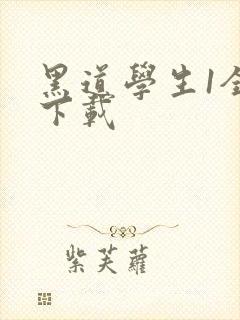 黑道學生1全
下載
紫芙蘿